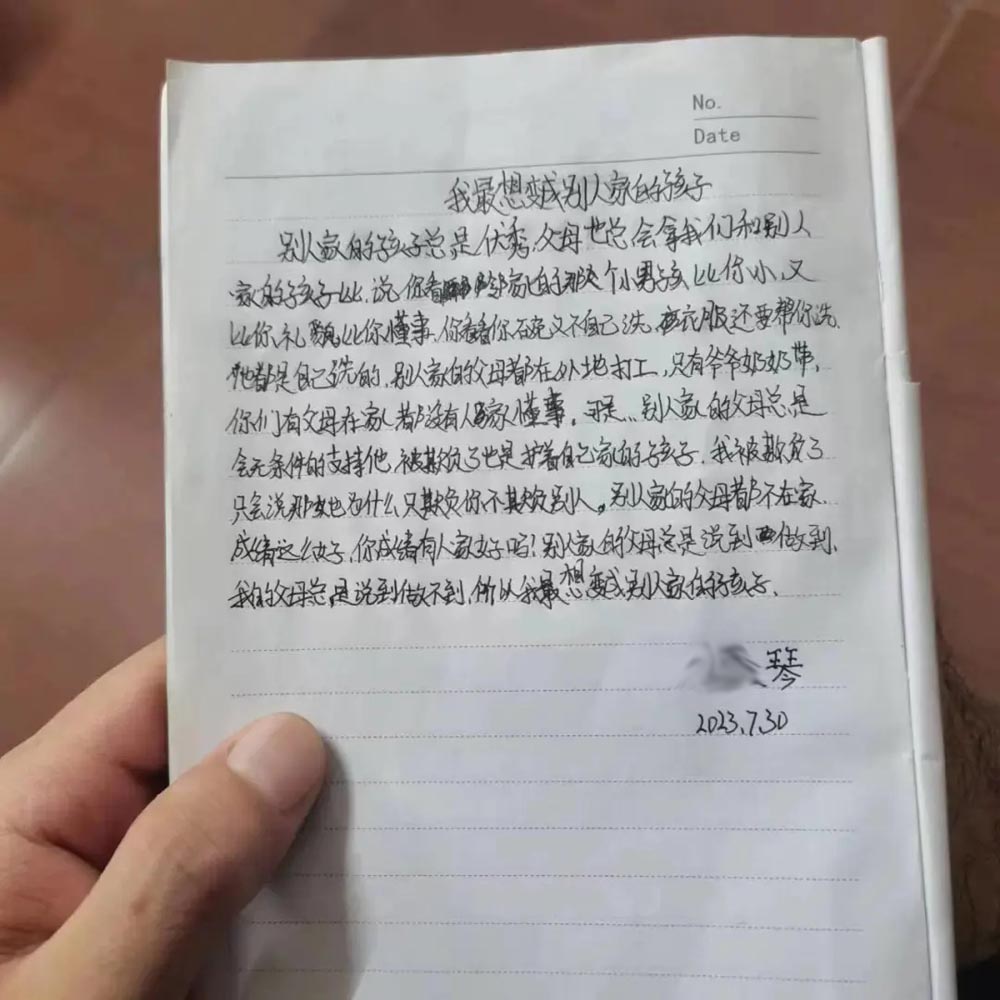 No.
Date
我最想变成别人家的孩子
别人家的孩子总是优秀,父母也总会拿我们和别人
家的孩子比,说,你看邻家的那个小男孩比你小,又
比你礼貌,比你懂事,你看看你碗又不自己洗,衣服还要帮你洗,
他都是自己洗的,别人家的父母都在外地打工,只有爷爷奶奶带,
你们有父母在家都没有人家懂事。可是...别人家的父母总是
会无条件的支持他,被欺负了也是护着自己家的孩子,我被欺负了
只会说那她为什么只欺负你不欺负别人。别人家的父母都不在家,
成绩这么好,你成绩有人家好吗?别人家的父母总是说到做到,
我的父母总是说到做不到,所以我最想变成别人家的孩子.
琴
2023.7.30